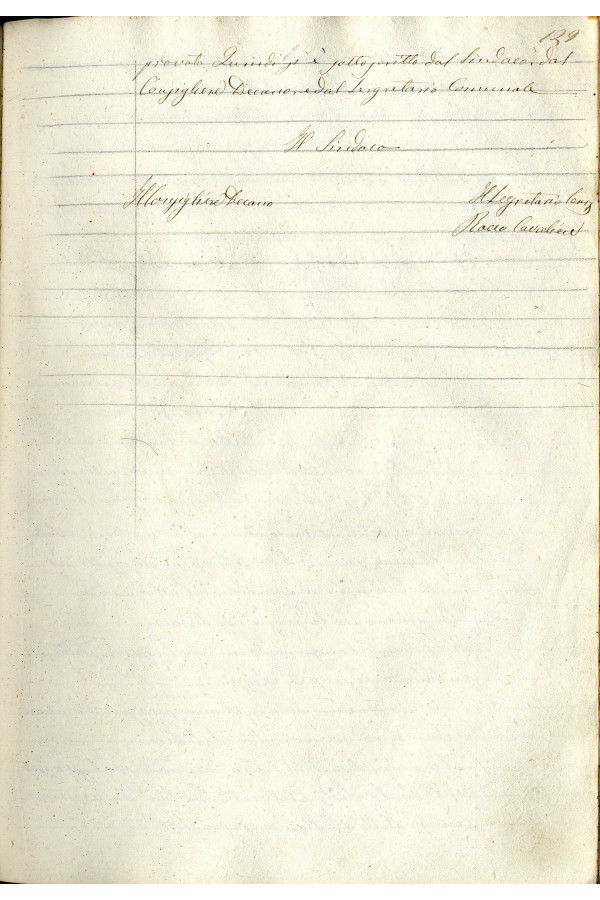 129
provato. Quindi si è sottoscritto dal Sindaco, dal
Consigliere Decano, e dal Segretario Comunale
Il Sindaco
Il Consigliere Decano
Il Segretario Com.
Rocco Cavaliere